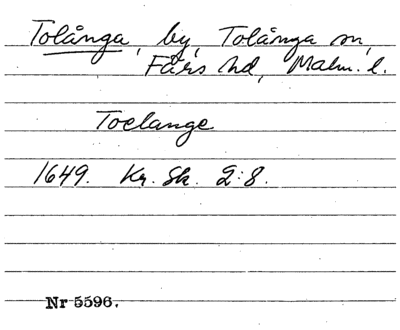 Tolånga, by, Tolånga sn,
Färs hd, Malm. l.
Toelange
1649. Kr. Sk. 2:8.
Nr 5596.